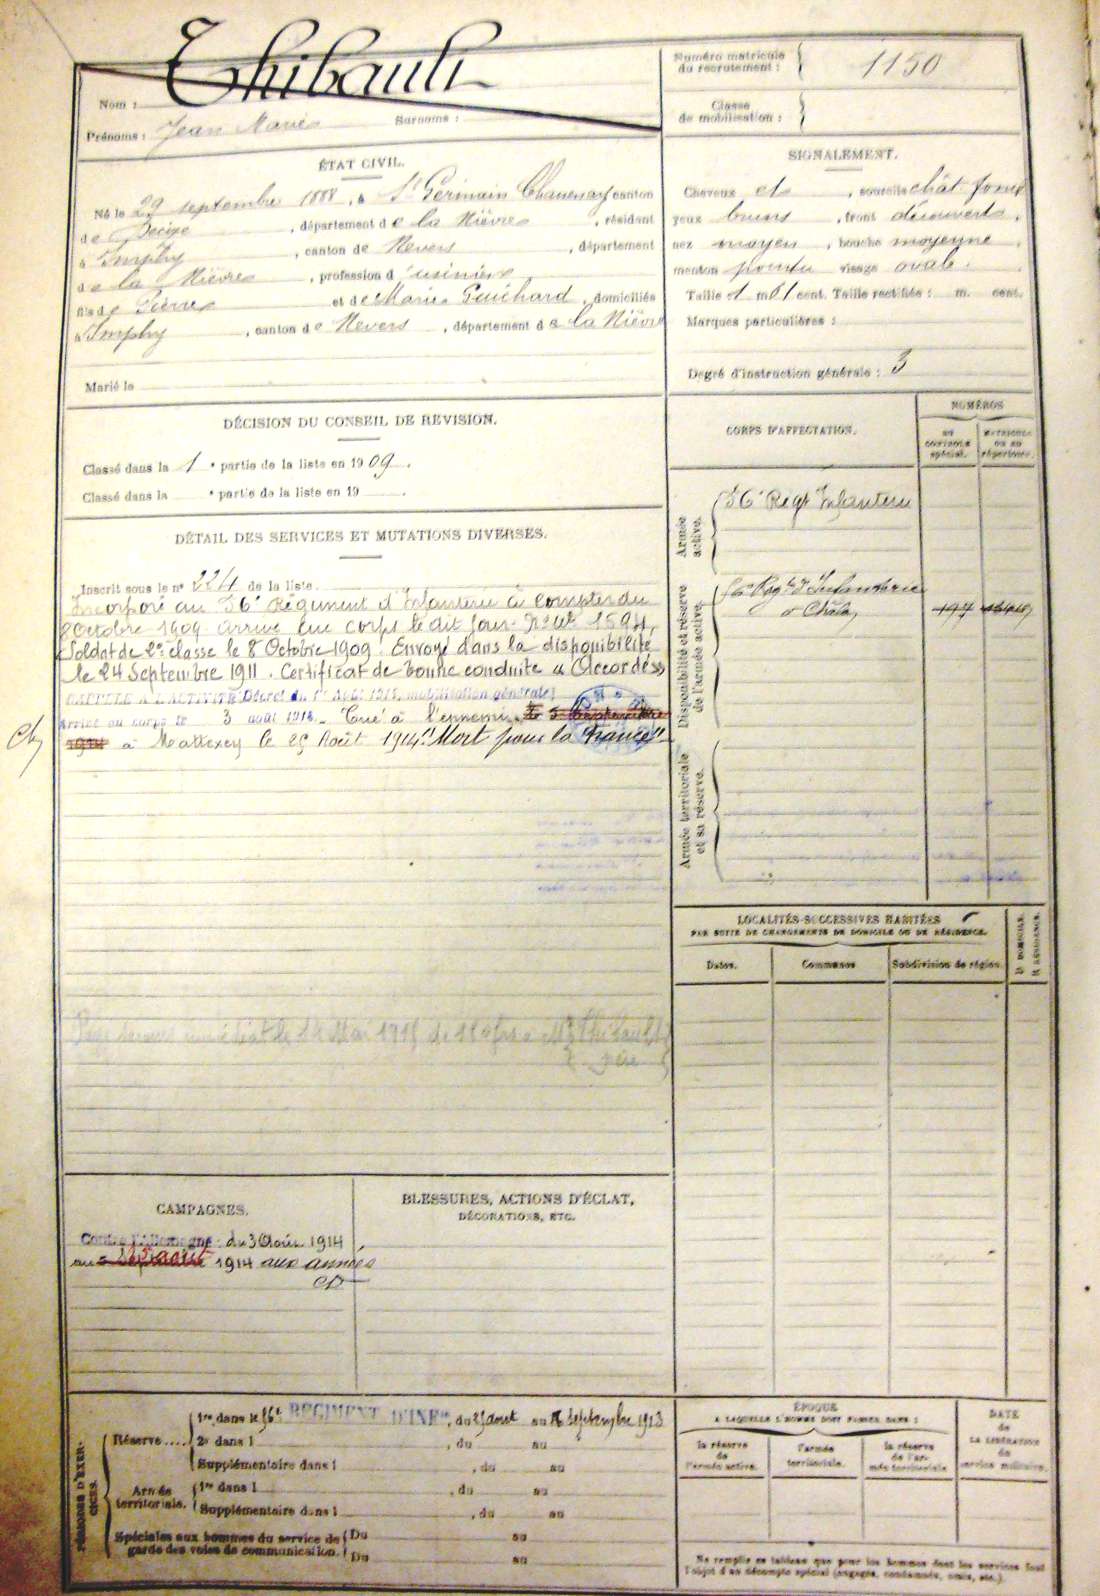 Thibault
Nom :
Prénoms : Jean Marie Surnoms :
Numéro matricule du recrutement : 1150
Classe de mobilisation :
ÉTAT CIVIL.
Né le 29 septembre 1888, à St Germain Chassenay canton
de Decize, département de la Nièvre, résidant
à Imphy, canton de Nevers, département
de la Nièvre, profession d'usinier
fils de Pierre et de Marie Guichard, domiciliés
à Imphy, canton de Nevers, département de la Nièvre
Marié le
SIGNALEMENT.
Cheveux et, sourcils chât foncé
yeux bruns, front découvert,
nez moyen, bouche moyenne
menton pointu visage ovale.
Taille 1 m 61 cent. Taille rectifiée : m. cent.
Marques particulières :
Degré d'instruction générale : 3
DÉCISION DU CONSEIL DE RÉVISION.
Classé dans la 1e partie de la liste en 1909.
Classé dans la e partie de la liste en 19 .
DÉTAIL DES SERVICES ET MUTATIONS DIVERSES.
Inscrit sous le n° 224 de la liste
Incorporé au 56e Régiment d'Infanterie à compter du
8 Octobre 1909 arrivé au corps le dit jour. No Mle 1594,
Soldat de 2e classe le 8 Octobre 1909. Envoyé dans la disponibilité
le 24 Septembre 1911. Certificat de bonne conduite "Accordé"
RAPPELÉ A L'ACTIVITÉ (Décret du 1er Août 1914, mobilisation générale)
Arrivé au corps le 3 août 1914. Tué à l'ennemi le 5 Septembre
1914 à Mattexey le 25 Août 1914. "Mort pour la France"
Payé secours immédiat le Mai 1915 de 150 frs à Mr Thibault
père
CORPS D'AFFECTATION.
NUMÉROS
AU CONTROLE spécial.
MATRICULE OU AU répertoire.
Armée active.
56e Régt Infanterie
Disponibilité et réserve de l'armée active.
56e Régt d'Infanterie
à Chalon
Armée territoriale et sa réserve.
LOCALITÉS SUCCESSIVES HABITÉES
PAR SUITE DE CHANGEMENTS DE DOMICILE OU DE RÉSIDENCE.
Dates.
Communes
Subdivision de région.
D. DOMICILE.
R. RÉSIDENCE.
CAMPAGNES.
Contre l'Allemagne : du 3 Août 1914
au 5 Septembre 25 août 1914 aux armées
BLESSURES, ACTIONS D'ÉCLAT,
DÉCORATIONS, ETC.
PÉRIODES D'EXERCICES.
Réserve....
1re dans le 56e RÉGIMENT D'INFie, du 25 août au Septembre 1913
2e dans l , du au
Supplémentaire dans l , du au
Armée territoriale.
1re dans l , du au
Supplémentaire dans l , du au
Spéciales aux hommes du service de garde des voies de communication.
Du au
Du au
ÉPOQUE
A LAQUELLE L'HOMME DOIT PASSER DANS :
la réserve de l'armée active.
l'armée territoriale.
la réserve de l'armée territoriale
DATE de LA LIBÉRATION du service militaire.
Ne remplir ce tableau que pour les hommes dont les services font
l'objet d'un décompte spécial (engagés, condamnés, omis, etc.).